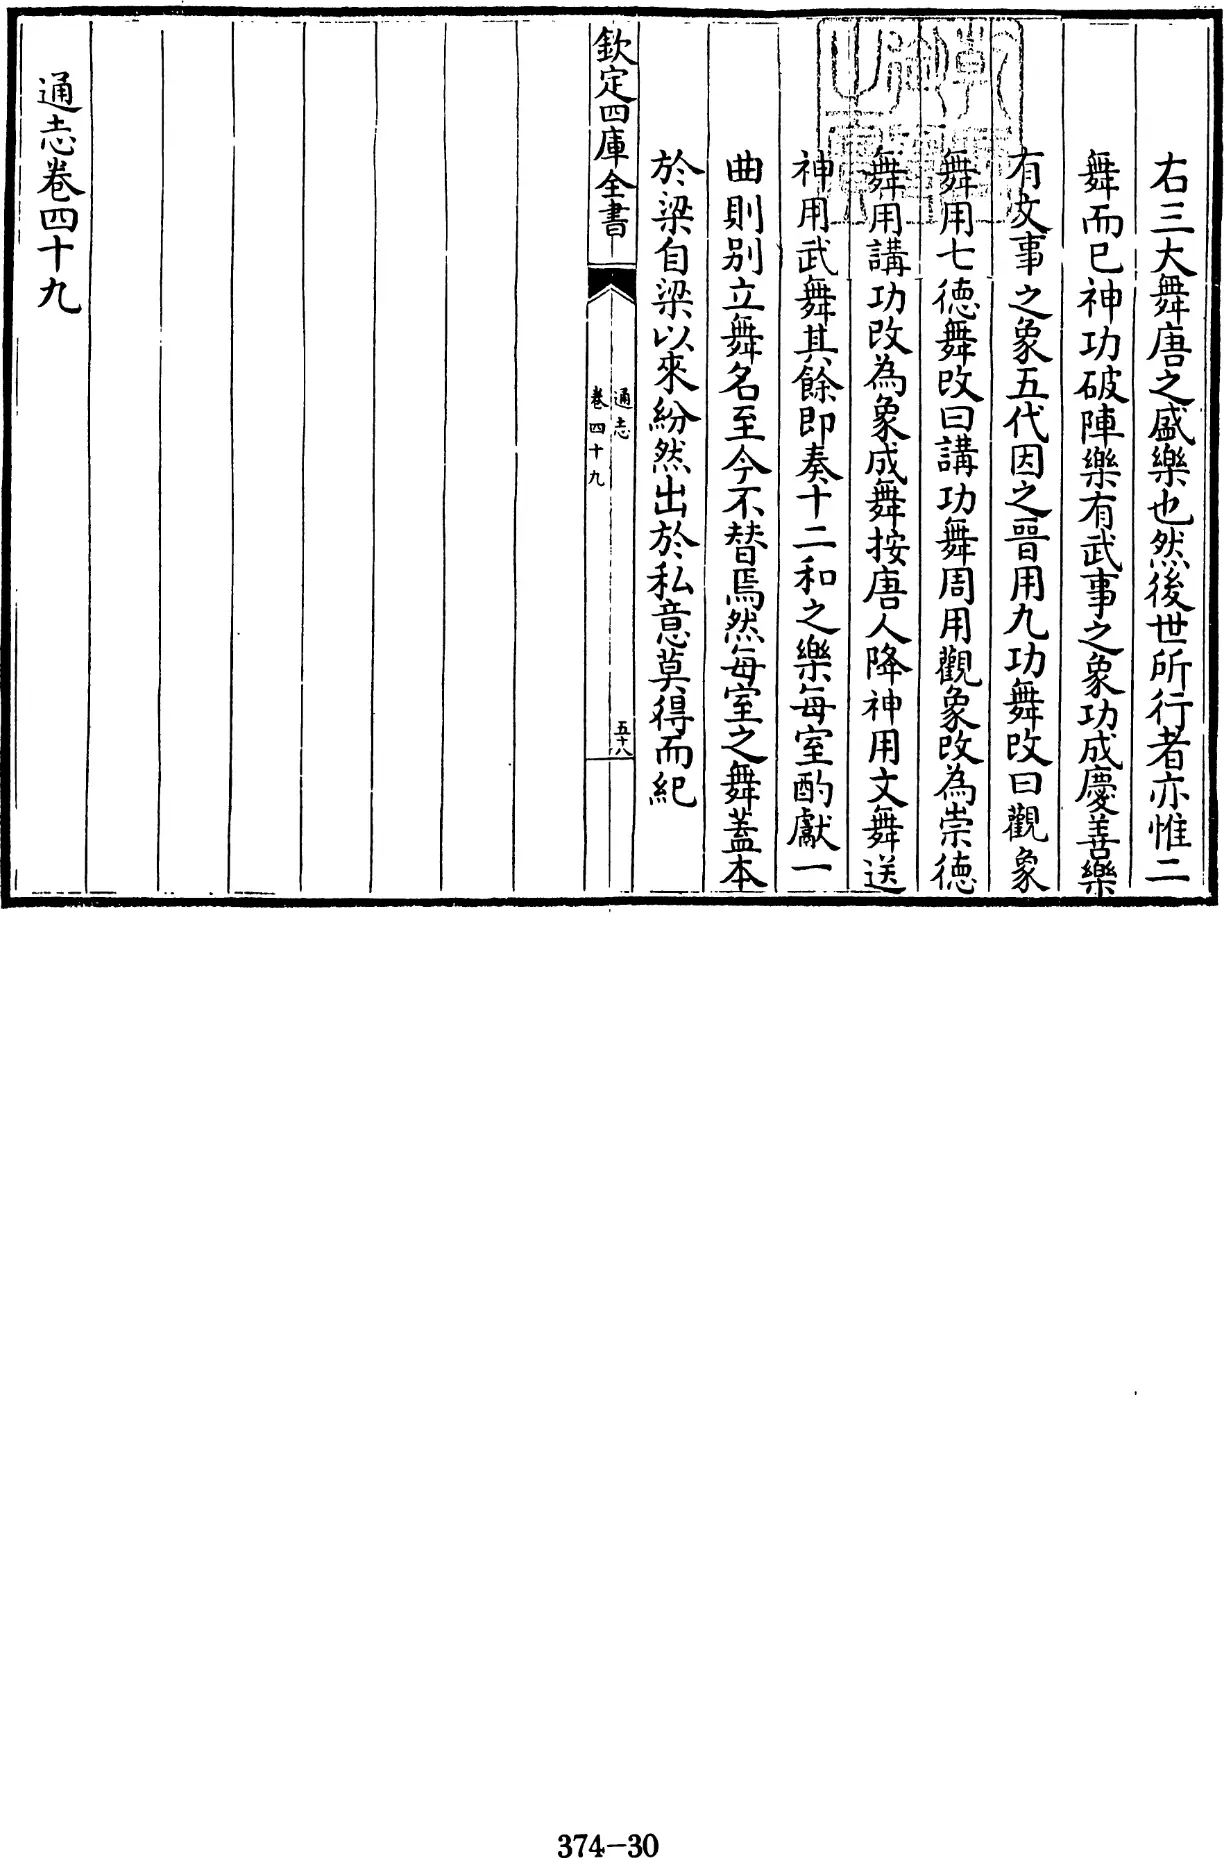 右三大舞唐之盛樂也然後世所行者亦惟二
舞而已神功破陣樂有武事之象功成慶善樂
有文事之象五代因之晉用九功舞改曰觀象
舞用七德舞改曰講功舞周用觀象改為崇德
舞用講功改為象成舞按唐人降神用文舞送
神用武舞其餘即奏十二和之樂每室酌獻一
曲則別立舞名至今不替焉然每室之舞蓋本
於梁自梁以來紛然出於私意莫得而紀
欽定四庫全書
通志
卷四十九
五十八
通志卷四十九
374-30